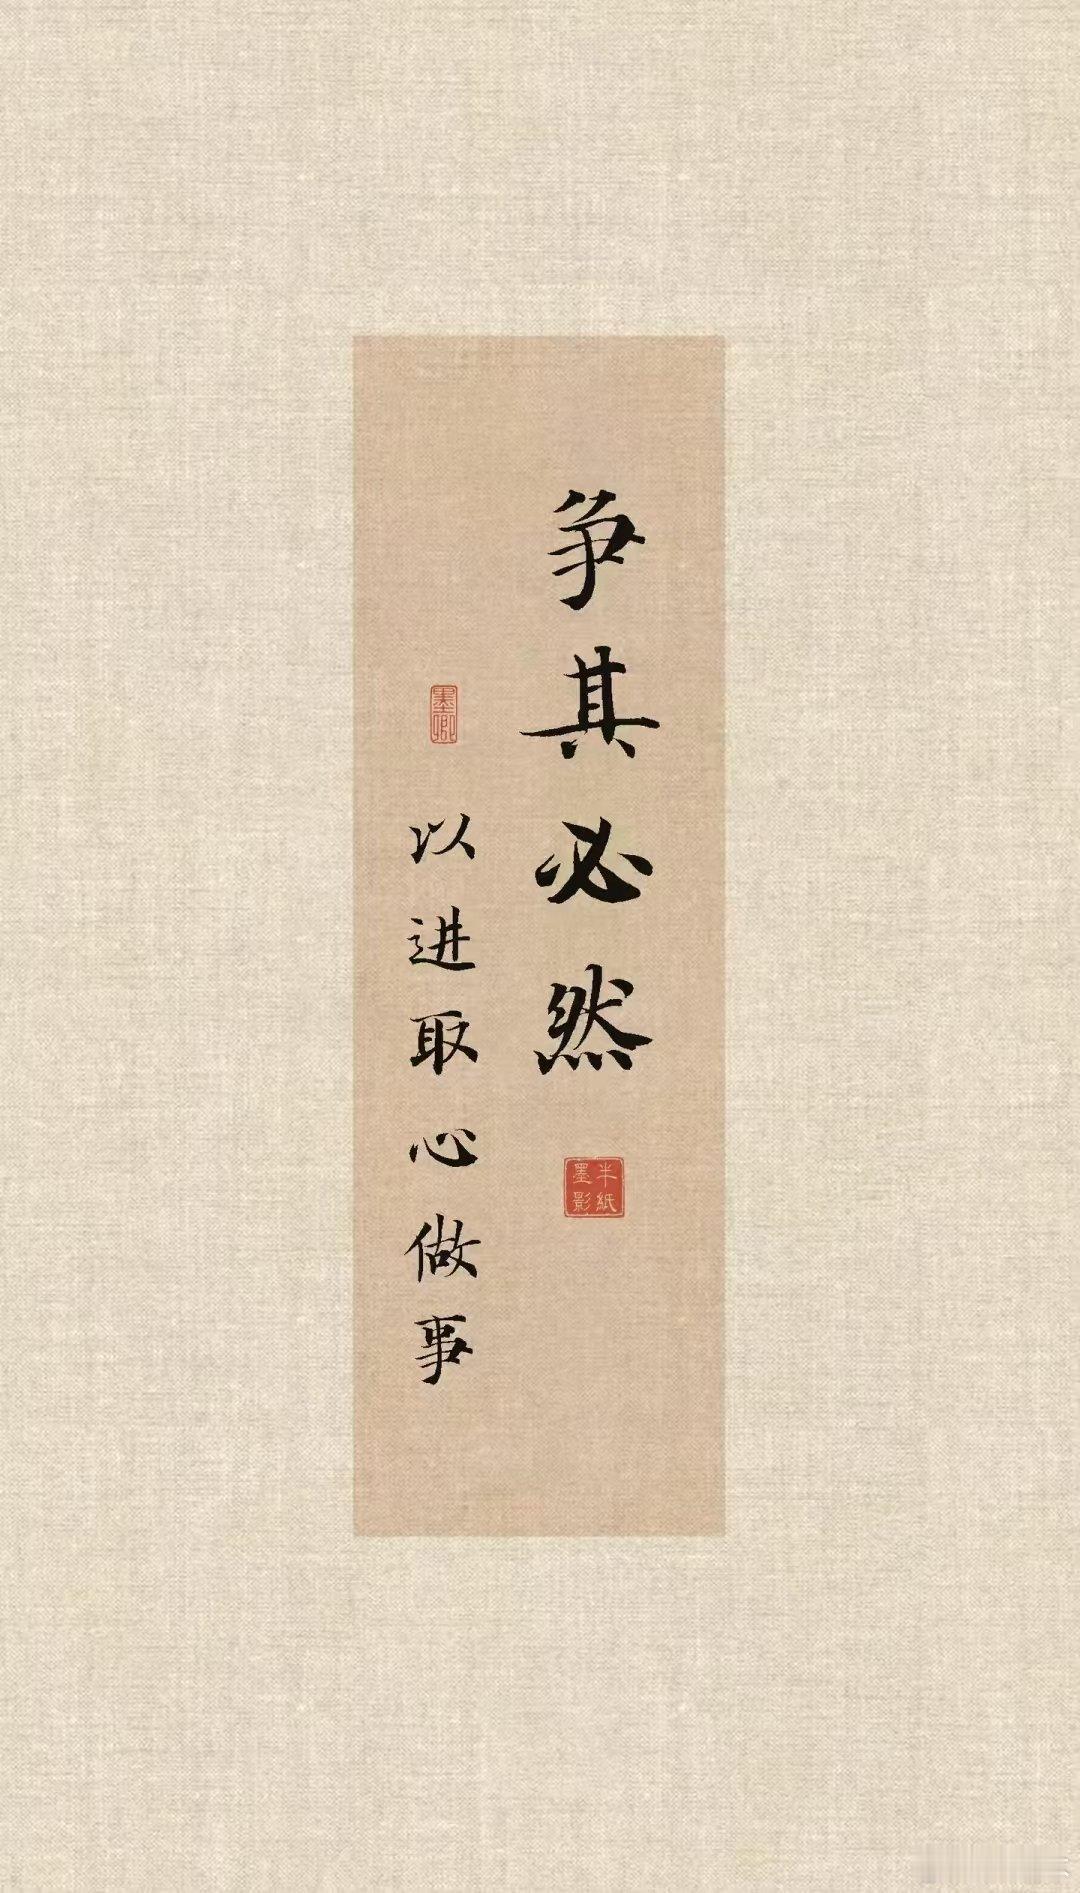 争其必然
半纸
墨影
墨卿
以进取心做事